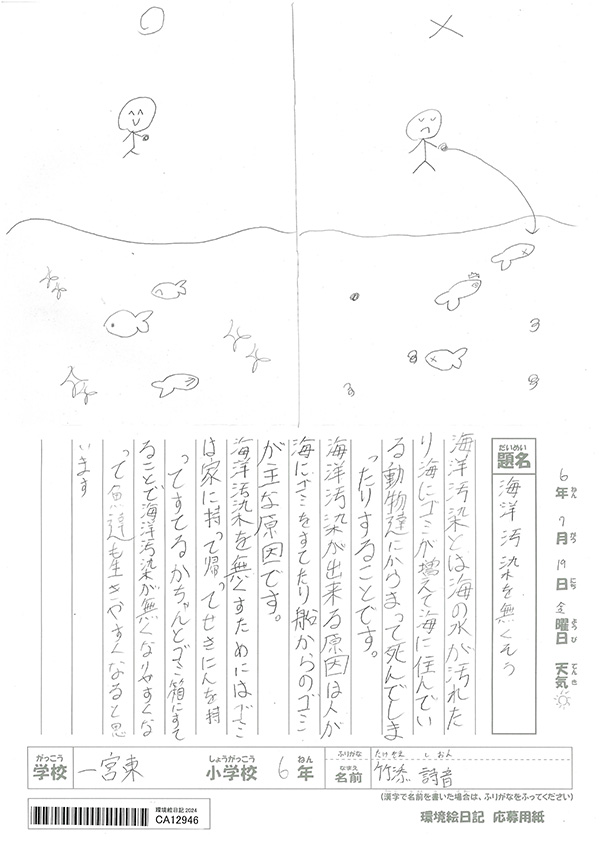 6年 7月 19日 金曜日 天気
ねん がつ にち ようび てんき
だいめい
題名
海洋汚染を無くそう
海洋汚染とは海の水が汚れた
り海にゴミが増えて海に住んでい
る動物達にからまって死んでしま
ったりすることです。
海洋汚染が出来る原因は人が
海にゴミをすてたり船からのゴミ
が主な原因です。
海洋汚染を無くすためにはゴミ
は家に持って帰ってせきにんを持
ってすてるかちゃんとゴミ箱にすて
ることで海洋汚染が無くなりやすくな
って魚達も生きやすくなると思
います
がっこう
学校
一宮東
しょうがっこう
小学校
ねん
6年
ふりがな
たけぞえ しおん
なまえ
名前
竹添 詩音
(漢字で名前を書いた場合は、ふりがなをふってください)
環境絵日記 2024
CA12946
環境絵日記 応募用紙